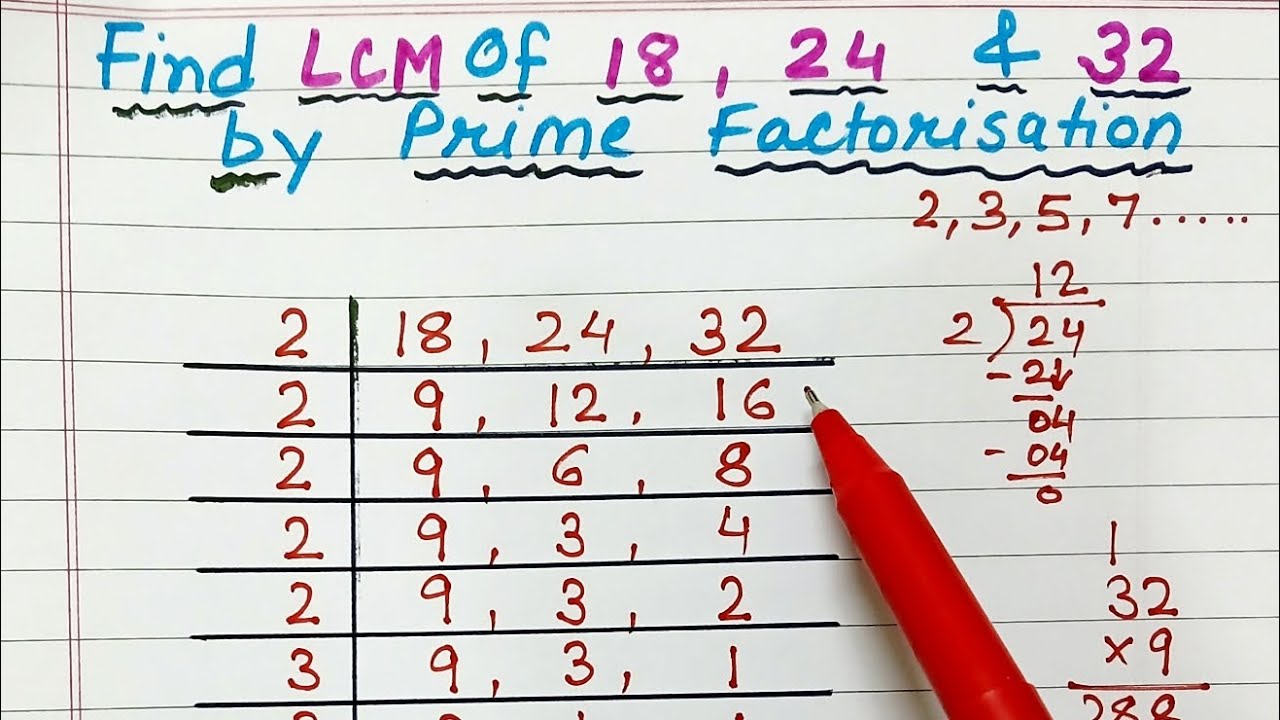 Find LCM Of 18, 24 & 32
by Prime Factorisation
2, 3, 5, 7......
2 | 18, 24, 32
2 | 9, 12, 16
2 | 9, 6, 8
2 | 9, 3, 4
2 | 9, 3, 2
3 | 9, 3, 1
12
2)24
- 2↓
04
- 04
0
1
32
×9
288